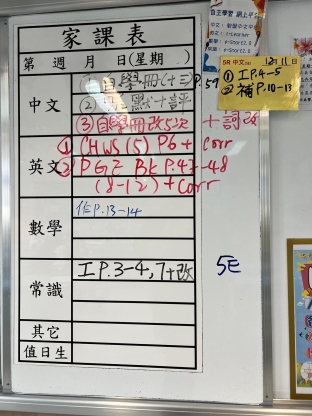 家課表
第 週 月 日(星期 )
中文
① 自學冊(十三)P.59
② 默 十評
③自學冊改5次 十詞改
英文
① CHWS (5) P6 + corr
② PGE BK P.47-48
(8-12) + corr
數學
作P.13-14
常識
工P.3-4,7+改
5E
其它
值日生
自主學習 網上平台
5R 中文
12月11日
① 工P.4-5
② 補P.10-13